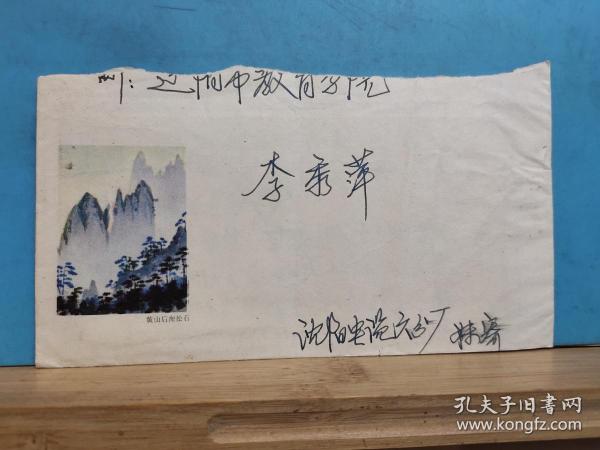 到：辽阳市教育学院
李秀萍
黄山后海松石
沈阳电缆六分厂 林寄
孔夫子旧书网
www.kongfz.com